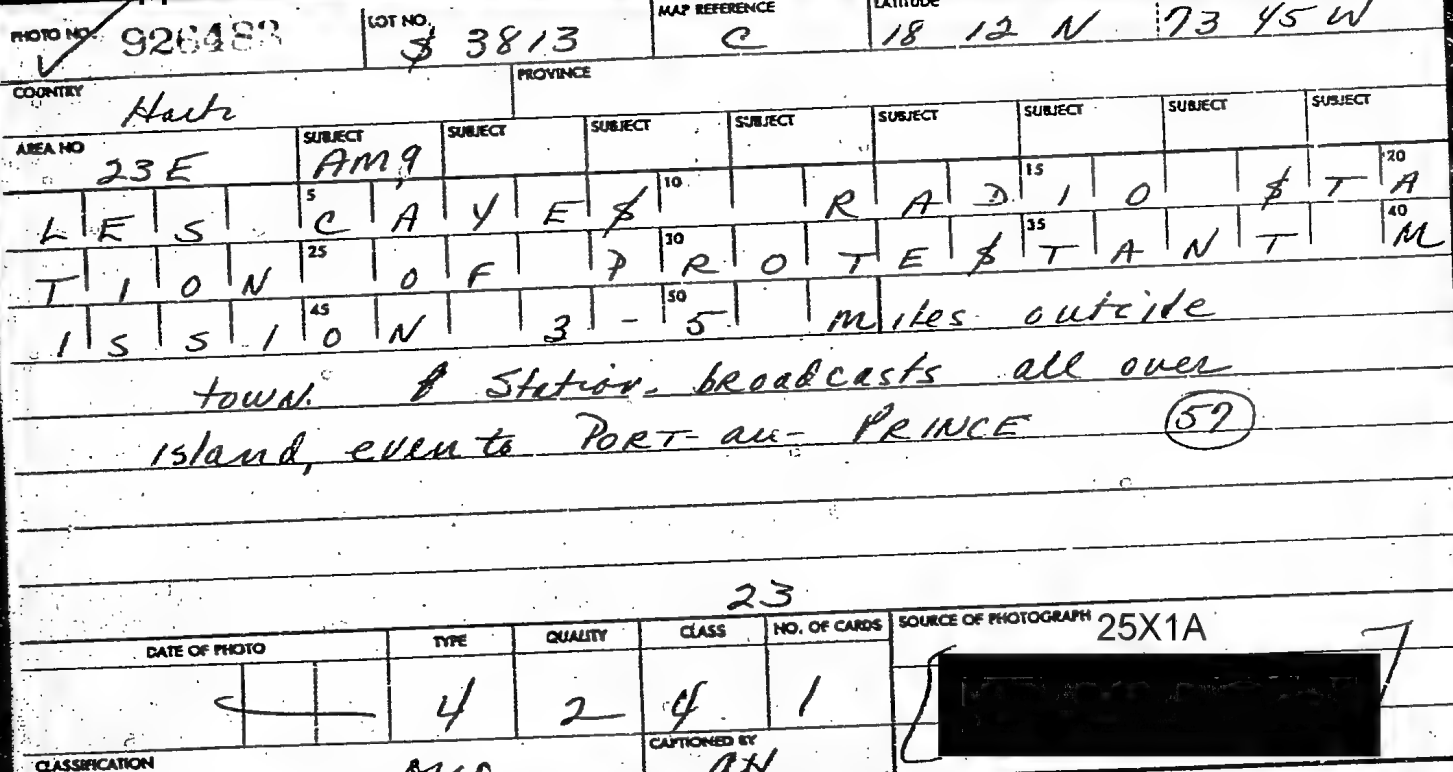 PHOTO NO. 926483 LOT NO. $ 3813 MAP REFERENCE C LATITUDE 18 12 N 73 45 W
COUNTRY Haiti PROVINCE
AREA NO 23 E SUBJECT AM9 SUBJECT SUBJECT SUBJECT SUBJECT SUBJECT SUBJECT SUBJECT
LES 5 CAYE$ 10 RAD 15 IO $TA 20
TION 25 OF P 30 ROTE$ 35 TANT M 40
ISSI 45 ON 3-5 50 miles outside
town. Station broadcasts all over
island, even to PORT-au-PRINCE 57
23
DATE OF PHOTO TYPE QUALITY CLASS NO. OF CARDS SOURCE OF PHOTOGRAPH 25X1A
4 2 4 1
CLASSIFICATION CAPTIONED BY